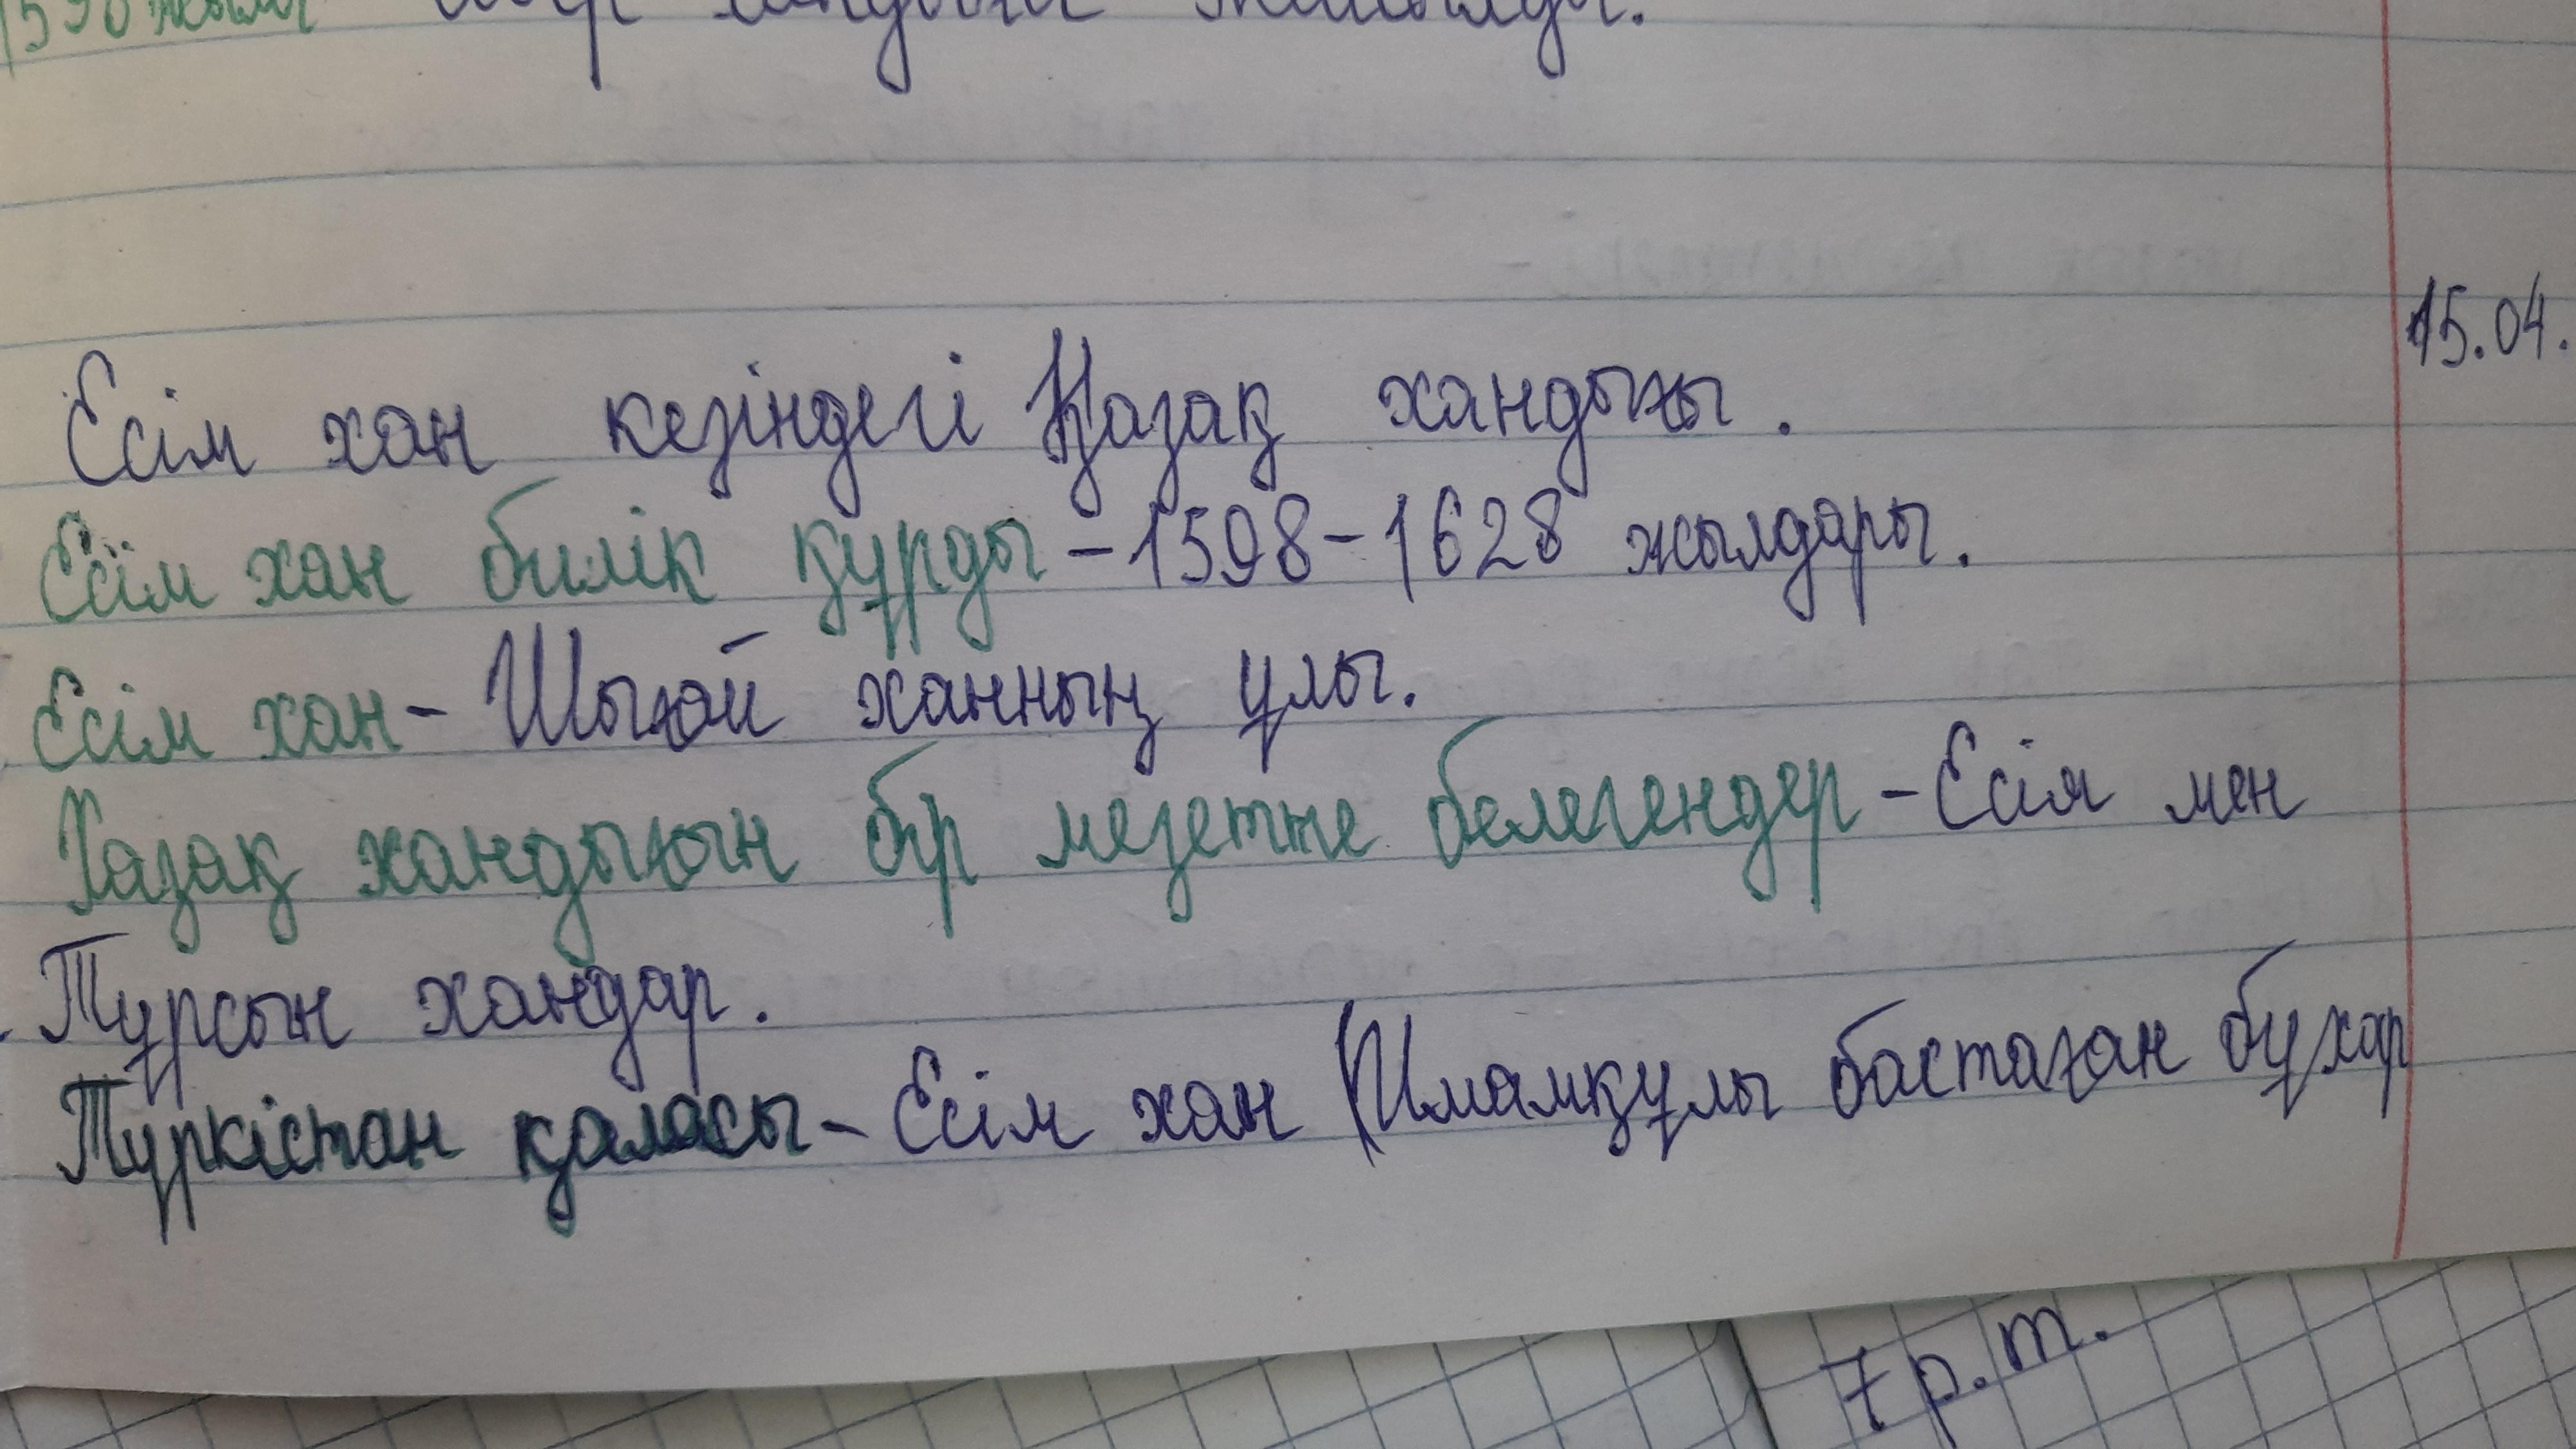 хандығы
15.04.
Есім хан кезіндегі Қазақ хандығы.
Есім хан билік құрды - 1598-1628 жылдары.
Есім хан - Шығай ханның ұлы.
Хазақ хандығын бір мезетте белегендер - Есім мен
Тұрсын хандар.
Түркістан қаласы - Есім хан (Имамқұлы бастаған бұхар
7 р.т.